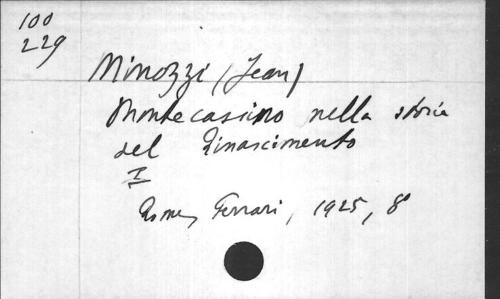 100
229
Minozzi (Jean)
Montecassino nella storia
del Rinascimento
I
Rome, Ferrari, 1925, 8°